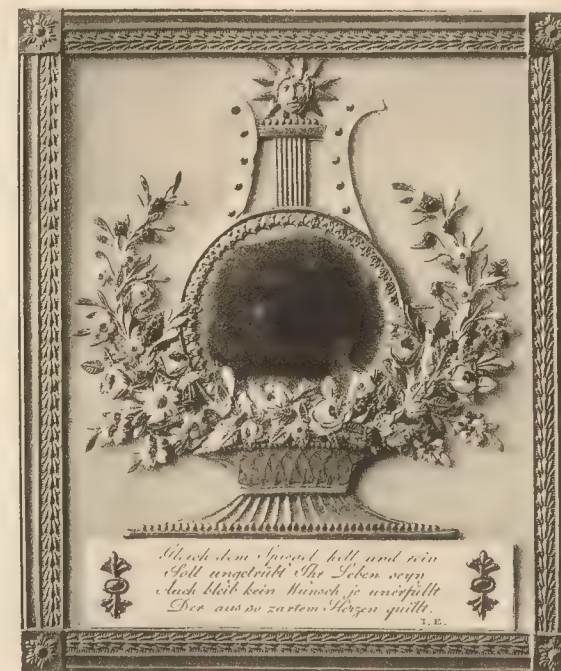 Gleich dem Spiegel hell und rein
Soll ungetrübt Ihr Leben seyn
Auch bleib kein Wunsch je unerfüllt
Der aus so zartem Herzen quillt.
I.E.